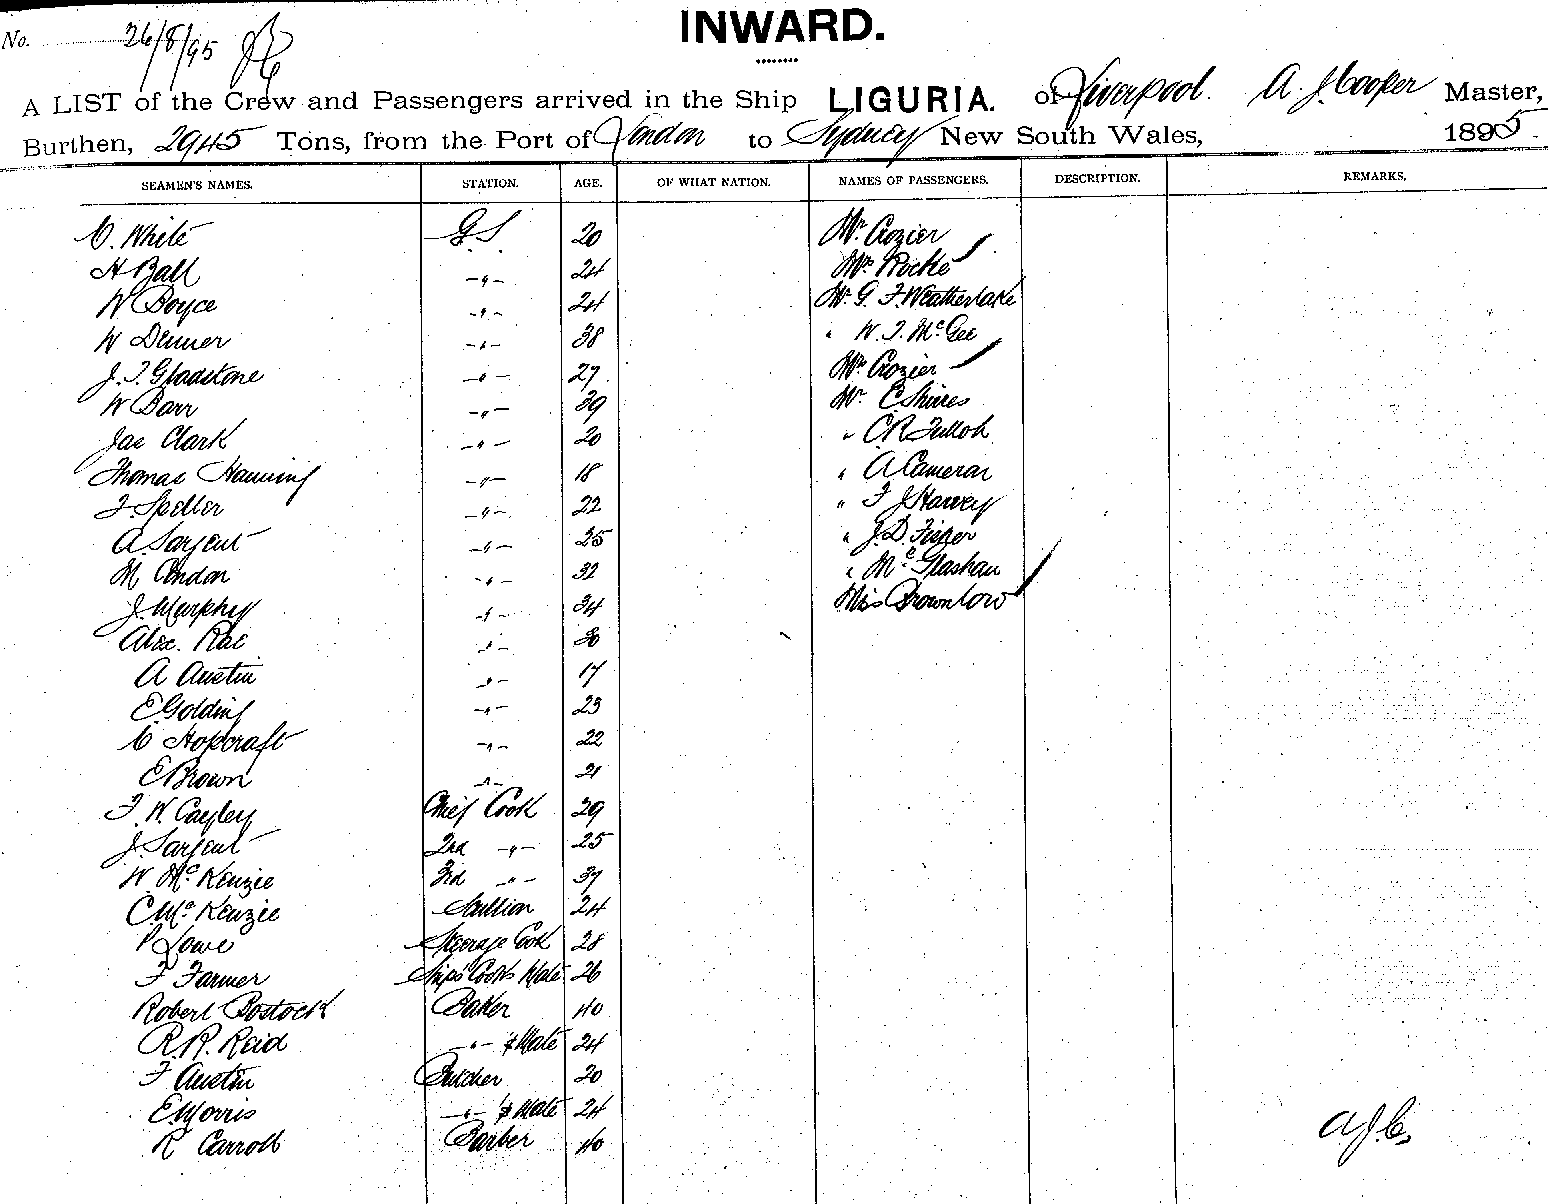 INWARD.
No. 26/8/95
A LIST of the Crew and Passengers arrived in the Ship LIGURIA. of Liverpool. A. J. Cooper Master,
Burthen, 2945 Tons, from the Port of London to Sydney New South Wales, 1895.
SEAMEN'S NAMES. STATION. AGE. OF WHAT NATION. NAMES OF PASSENGERS. DESCRIPTION. REMARKS.
C. White G.S. 20 Mr. Crozier
H Ball -"- 24 Mrs Rocke
W Boyce -"- 24 Mr. G. F. Weatherlake
W Denner -"- 38 " W. T. McGee
J. T. Gladstone -"- 27 Mrs Crozier
W Barr -"- 39 Mr. E Shires
Jas Clark -"- 20 " C R Tulloh
Thomas Hanning -"- 18 " A Cameron
F. Speller -"- 22 " F J Harvey
A. Sargent -"- 25 " J. D. Fisher
M Condon -"- 32 " McGlashan
J. Murphy -"- 34 Miss Brownlow
Alex. Rae -"- 30
A Austin -"- 17
E Golding -"- 23
C Hopcraft -"- 22
E Brown -"- 21
F. W. Cayley Chief Cook 29
J. Sargent 2nd -"- 25
W McKenzie 3rd -"- 37
C. McKenzie Scullion 24
P Lowe Steerage Cook 28
F Farmer Ships Cooks Mate 26
Robert Bostock Baker 40
R. R. Reid -"- & Mate 24
F Austin Butcher 20
E Morris -"- & Mate 24
R Carroll Barber 40
A J C.